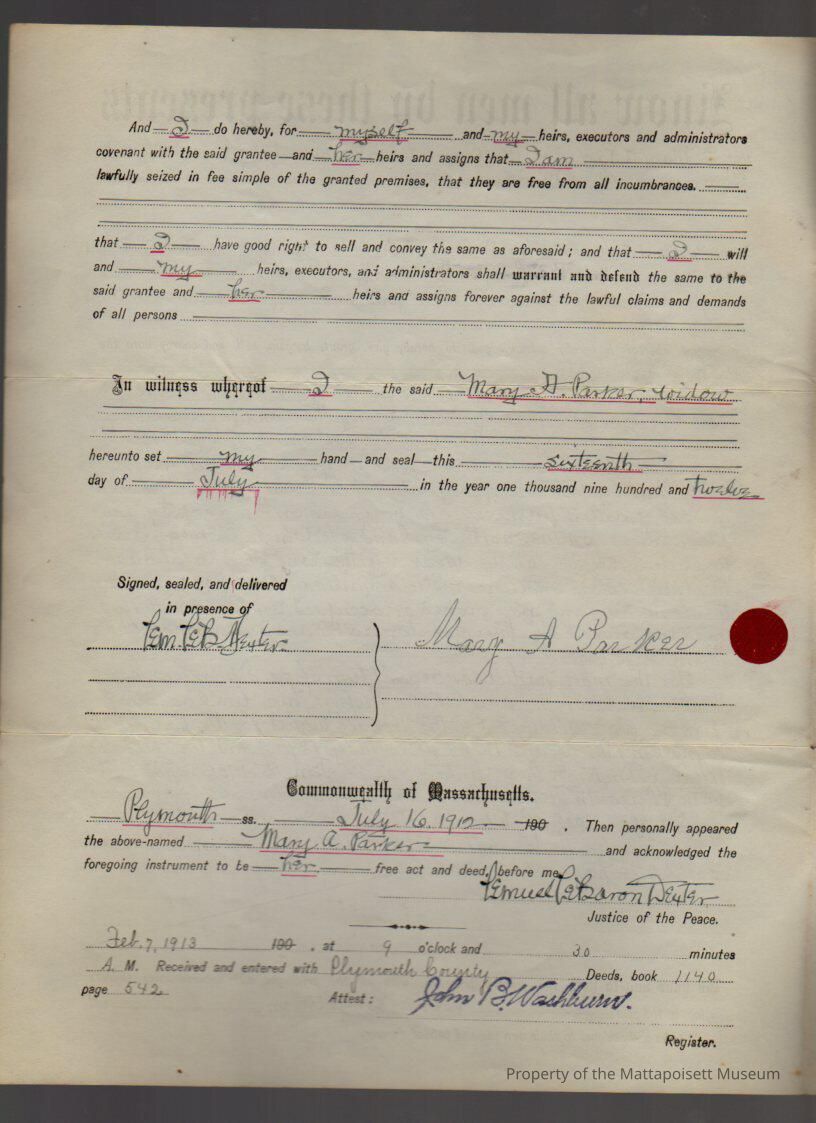 And I do hereby, for myself and my heirs, executors and administrators
covenant with the said grantee and her heirs and assigns that I am
lawfully seized in fee simple of the granted premises, that they are free from all incumbrances.
that I have good right to sell and convey the same as aforesaid; and that I will
and my heirs, executors, and administrators shall warrant and defend the same to the
said grantee and her heirs and assigns forever against the lawful claims and demands
of all persons
In witness whereof I the said Mary A. Parker, widow
hereunto set my hand and seal this sixteenth
day of July in the year one thousand nine hundred and twelve
Signed, sealed, and delivered
in presence of
Lem. LeB. Dexter
Mary A Parker
Commonwealth of Massachusetts.
Plymouth ss. July 16. 1912 190 . Then personally appeared
the above-named Mary A. Parker and acknowledged the
foregoing instrument to be her free act and deed, before me
Lemuel LeBaron Dexter
Justice of the Peace.
Feb. 7, 1913 190 . at 9 o'clock and 30 minutes
A. M. Received and entered with Plymouth County Deeds, book 1140
page 542 Attest: John B. Washburn.
Register.
Property of the Mattapoisett Museum